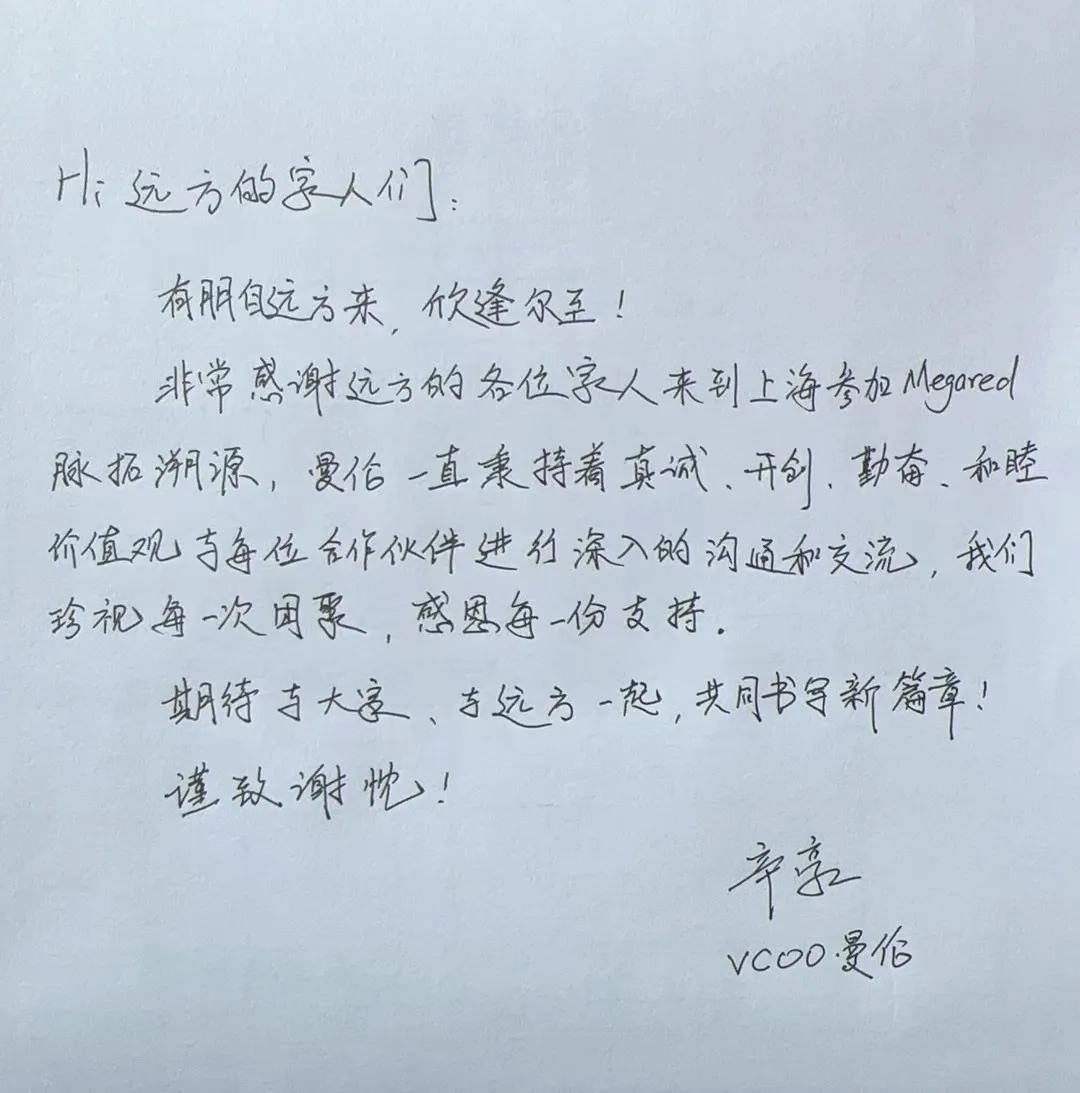 Hi 远方的家人们：
有朋自远方来，欣逢尔至！
非常感谢远方的各位家人来到上海参加Megared
脉拓溯源，曼伦一直秉持着真诚、开创、勤奋、和睦
价值观与每位合作伙伴进行深入的沟通和交流，我们
珍视每一次团聚，感恩每一份支持。
期待与大家、与远方一起，共同书写新篇章！
谨致谢忱！
VCOO 曼伦